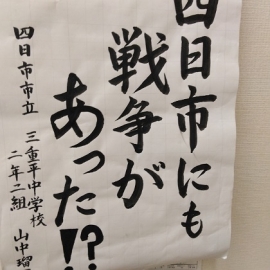 四日市にも
戦争が
あった!?
四日市市立 三重平中学校
二年二組 山中瑠